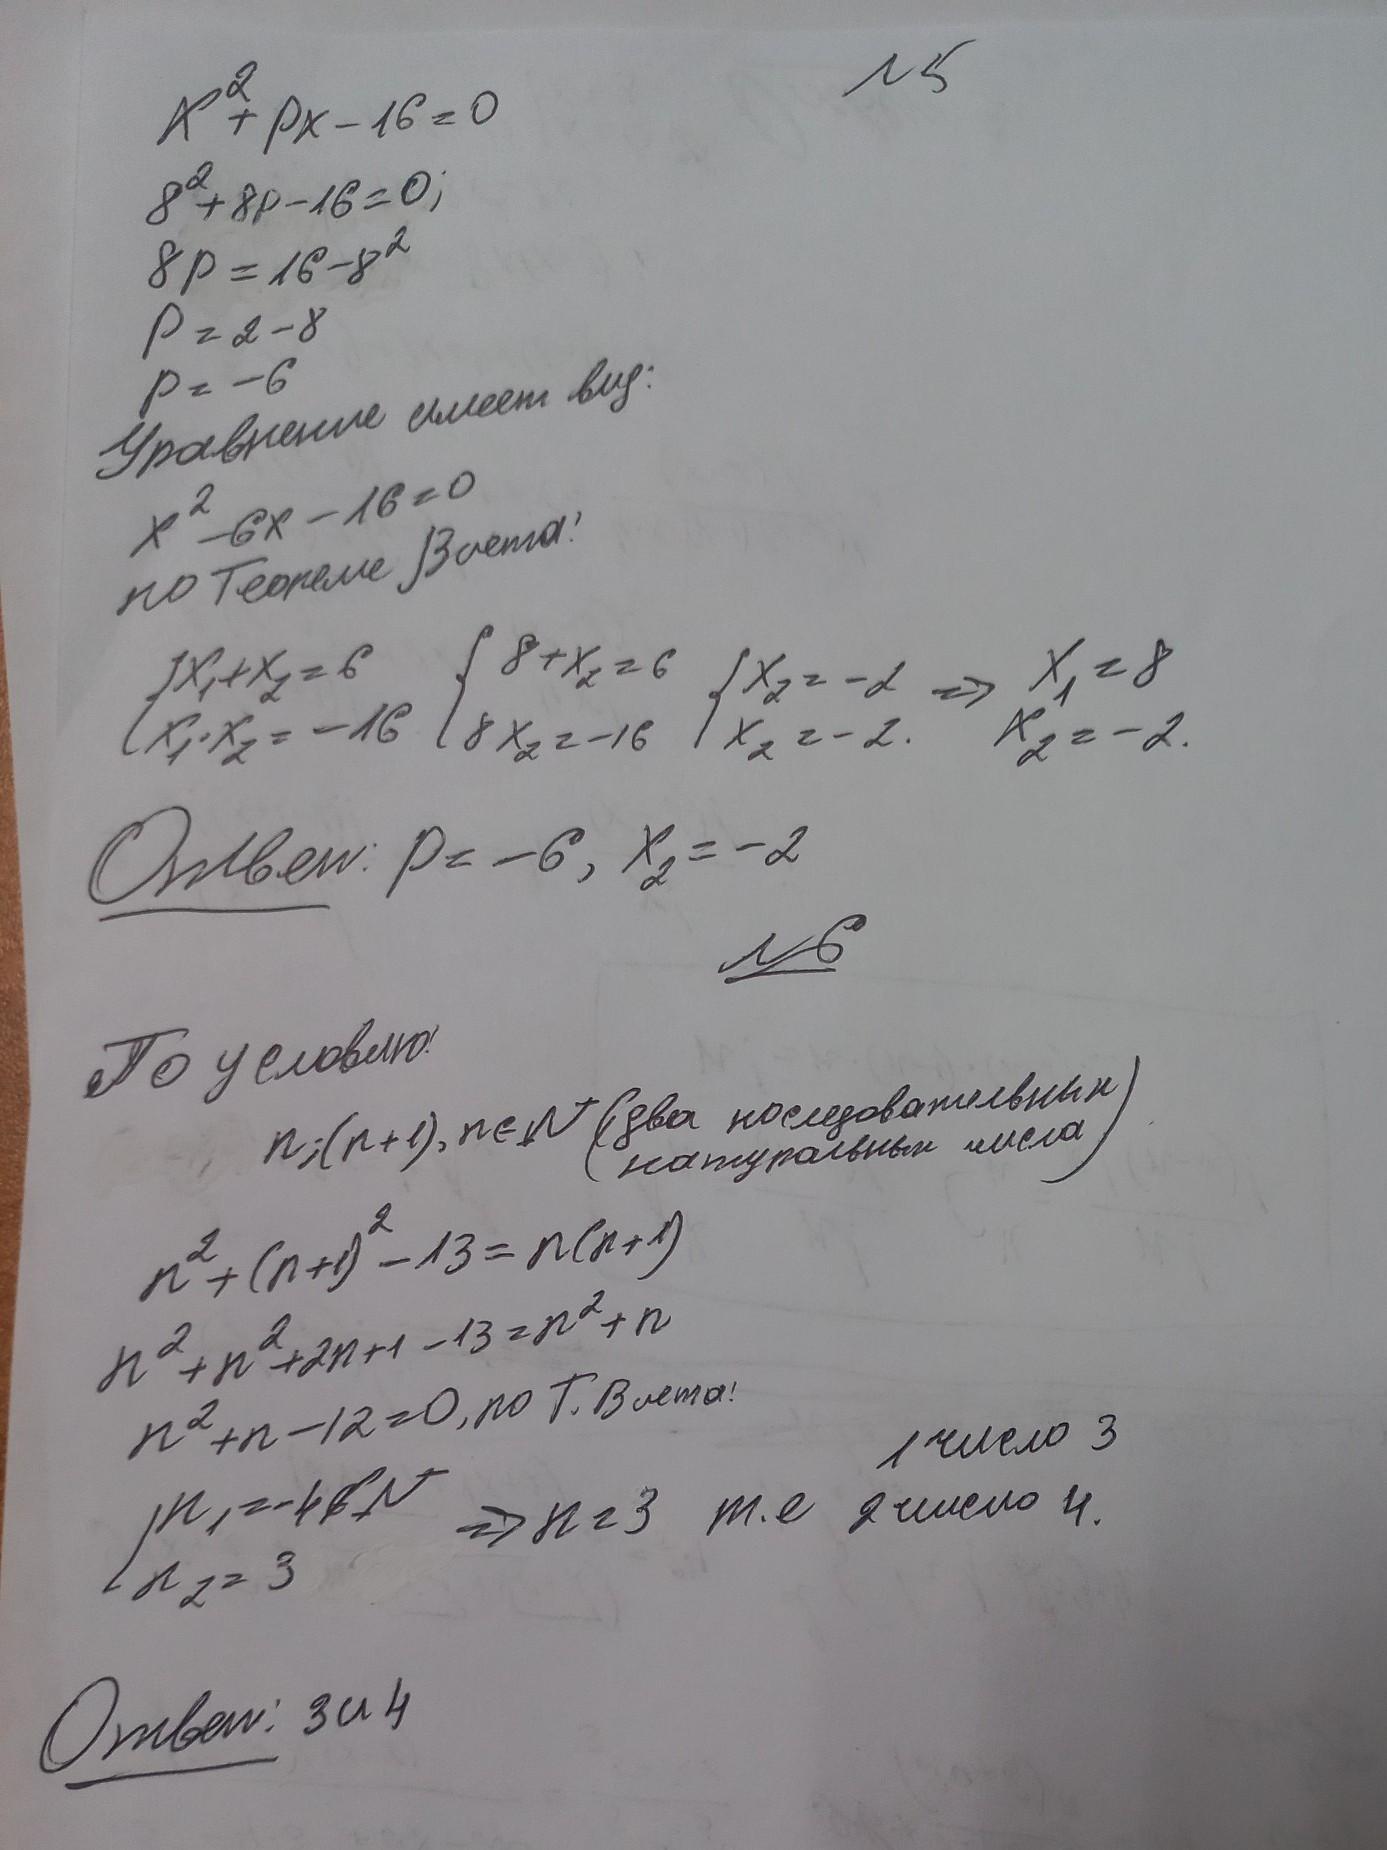 №5
x² + px - 16 = 0
8² + 8p - 16 = 0;
8p = 16 - 8²
p = 2 - 8
p = -6
Уравнение имеет вид:
x² - 6x - 16 = 0
по Теореме Виета:
{x₁ + x₂ = 6 {8 + x₂ = 6 {x₂ = -2 => x₁ = 8
{x₁ · x₂ = -16 {8x₂ = -16 {x₂ = -2. x₂ = -2.
Ответ: p = -6, x₂ = -2
№6
По условию:
n; (n+1), n ∈ N (два последовательных
натуральных числа)
n² + (n+1)² - 13 = n(n+1)
n² + n² + 2n + 1 - 13 = n² + n
n² + n - 12 = 0, по Т. Виета:
1 число 3
{n₁ = -4 ∉ N => n = 3 т.е 2 число 4.
{n₂ = 3
Ответ: 3 и 4